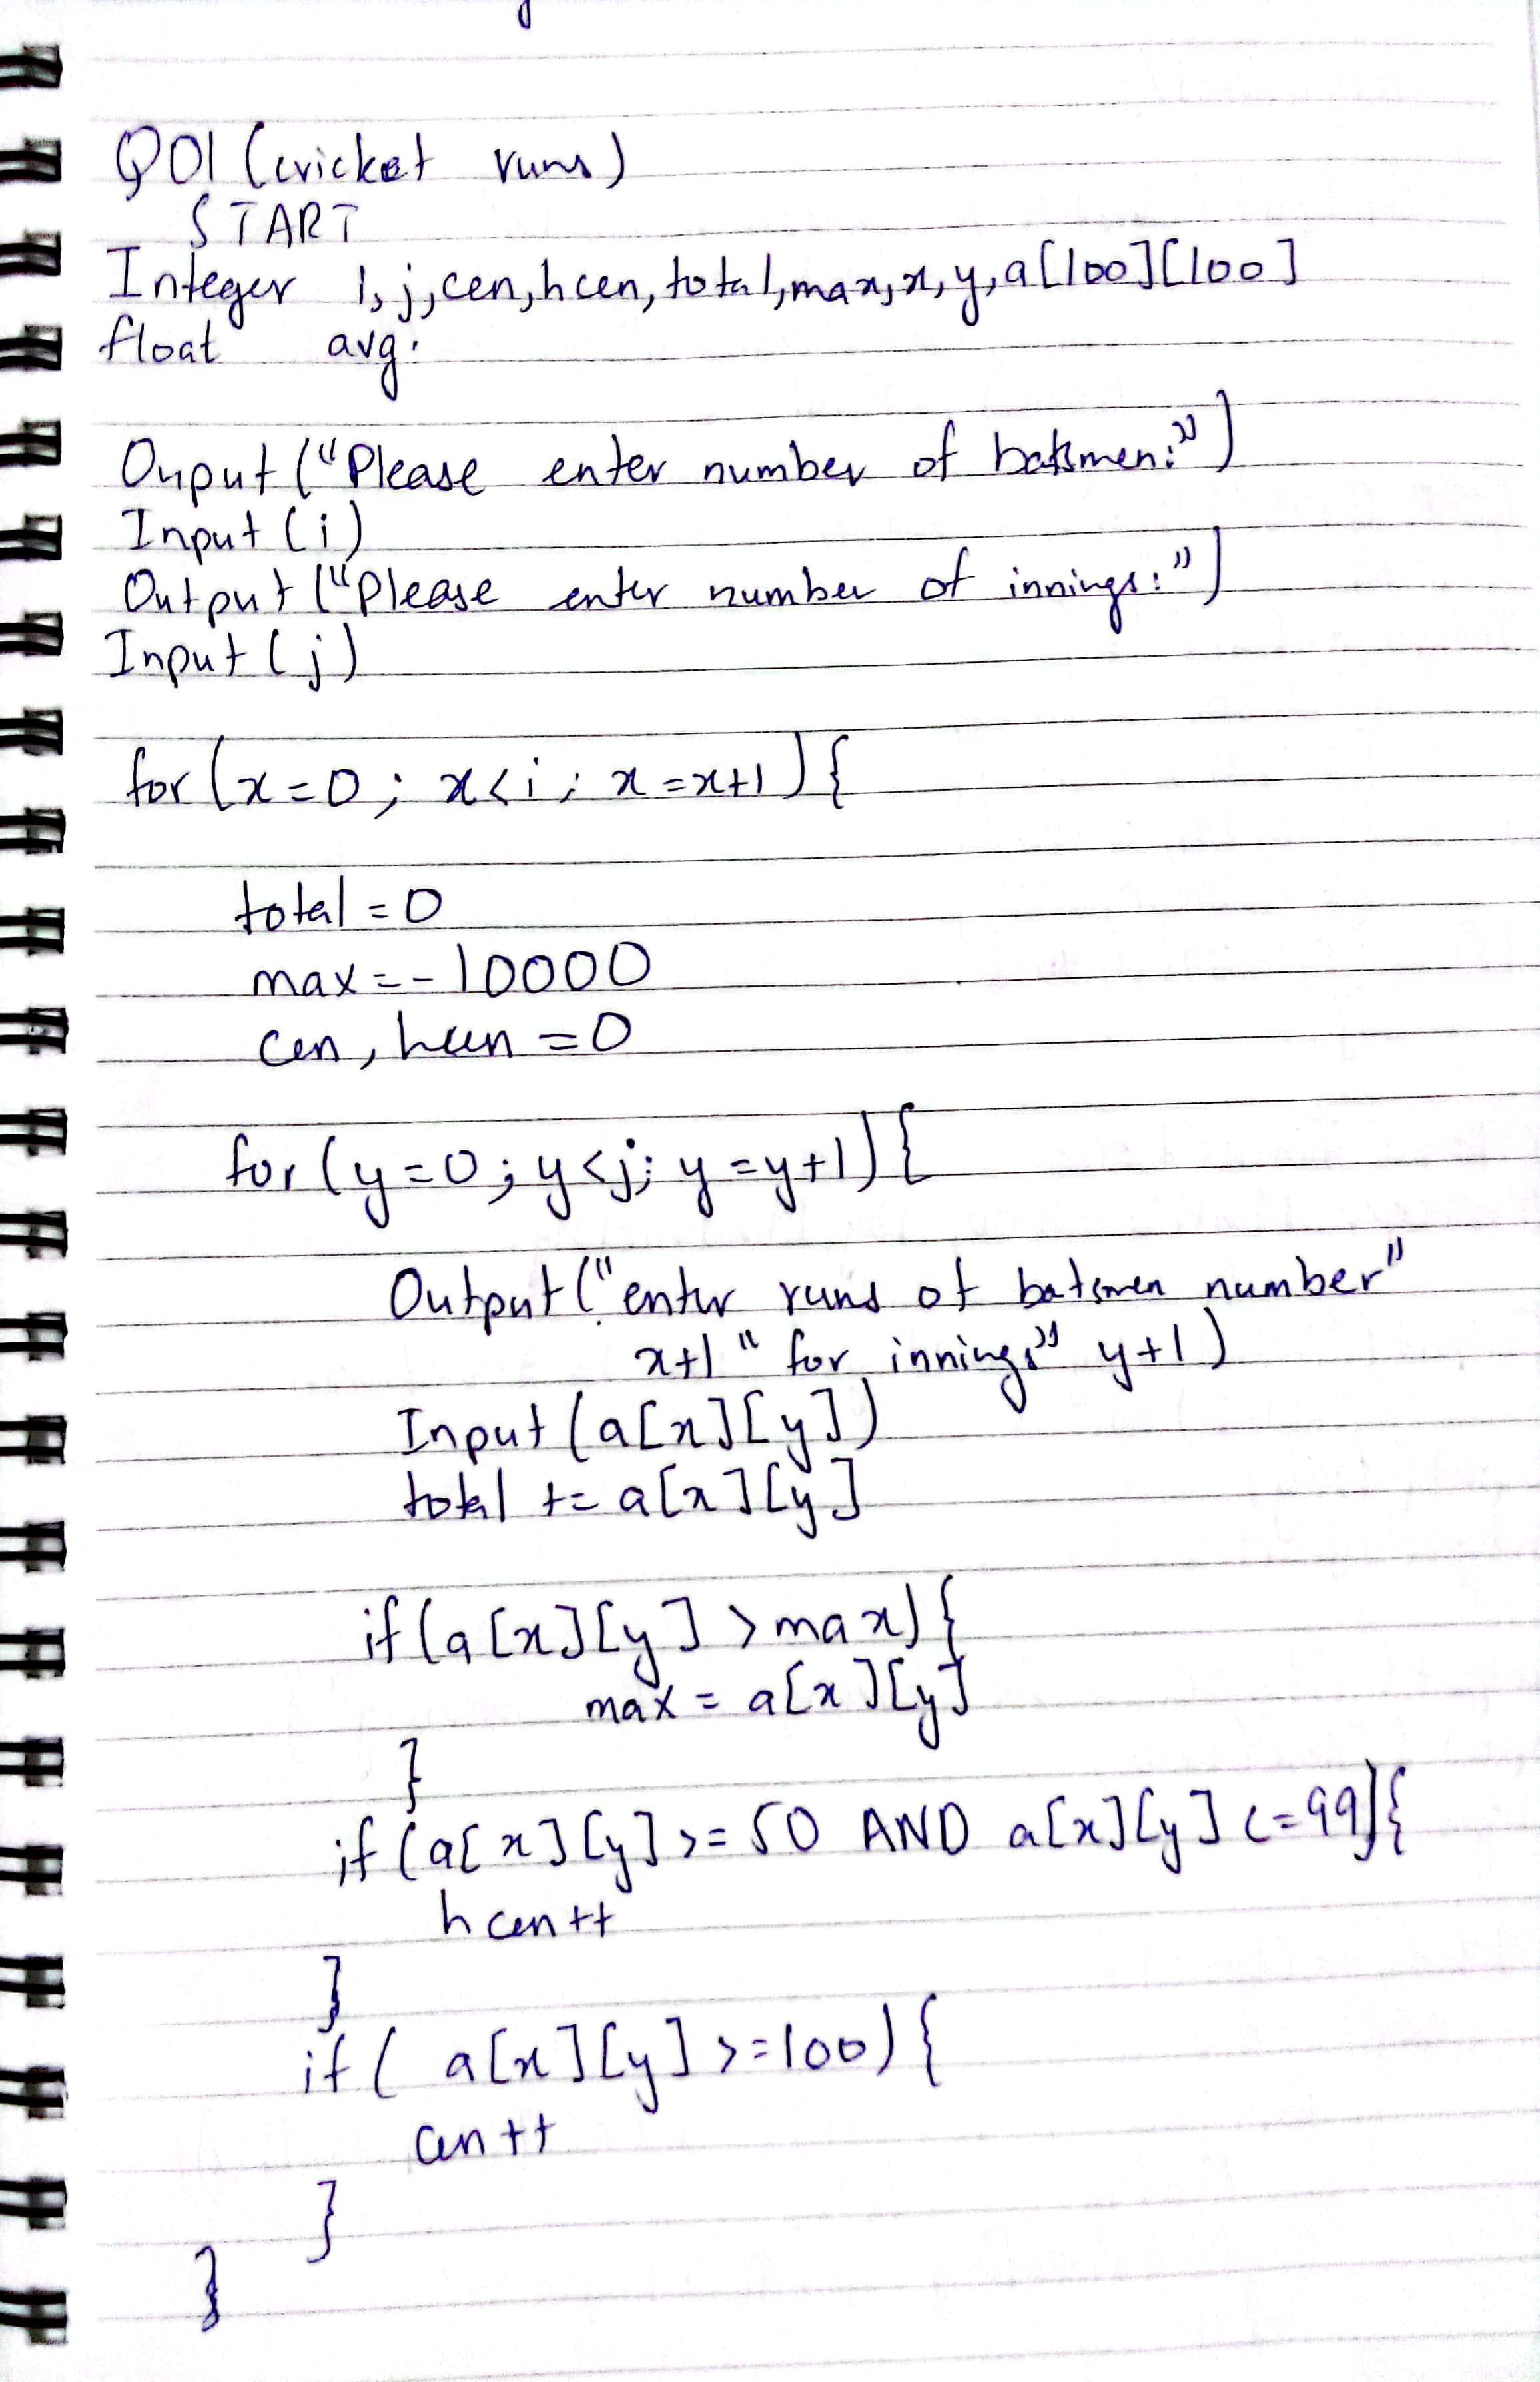 Q01 (cricket runs)
START
Integer i, j, cen, hcen, total, max, x, y, a[100][100]
float avg.
Ouput ("Please enter number of batsmen:")
Input (i)
Output ("Please enter number of innings:")
Input (j)
for (x=0; x<i; x=x+1) {
total = 0
max = -10000
cen, hcen = 0
for (y=0; y<j; y=y+1) {
Output ("enter runs of batsmen number"
x+1 " for innings" y+1)
Input (a[x][y])
total += a[x][y]
if (a[x][y] > max) {
max = a[x][y]
}
if (a[x][y] >= 50 AND a[x][y] <= 99) {
hcen++
}
if ( a[x][y] >= 100) {
cen++
}
}